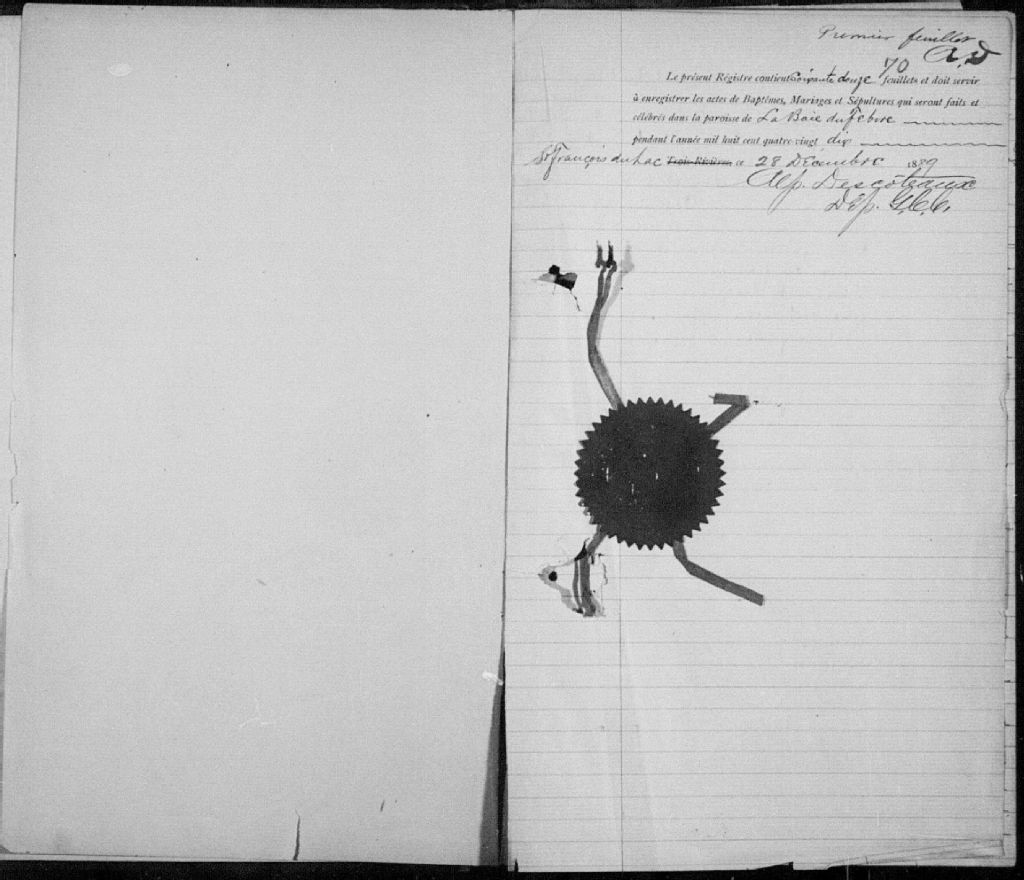 Premier feuillet
A. D
70
Le présent Régistre contient soixante douze feuillets et doit servir
à enregistrer les actes de Baptêmes, Mariages et Sépultures qui seront faits et
célébrés dans la paroisse de La Baie du Febvre
pendant l'année mil huit cent quatre-vingt dix
St François du Lac Trois-Rivières ce 28 Décembre 1889
Alp. Descôteaux
Dép. G.C.C.